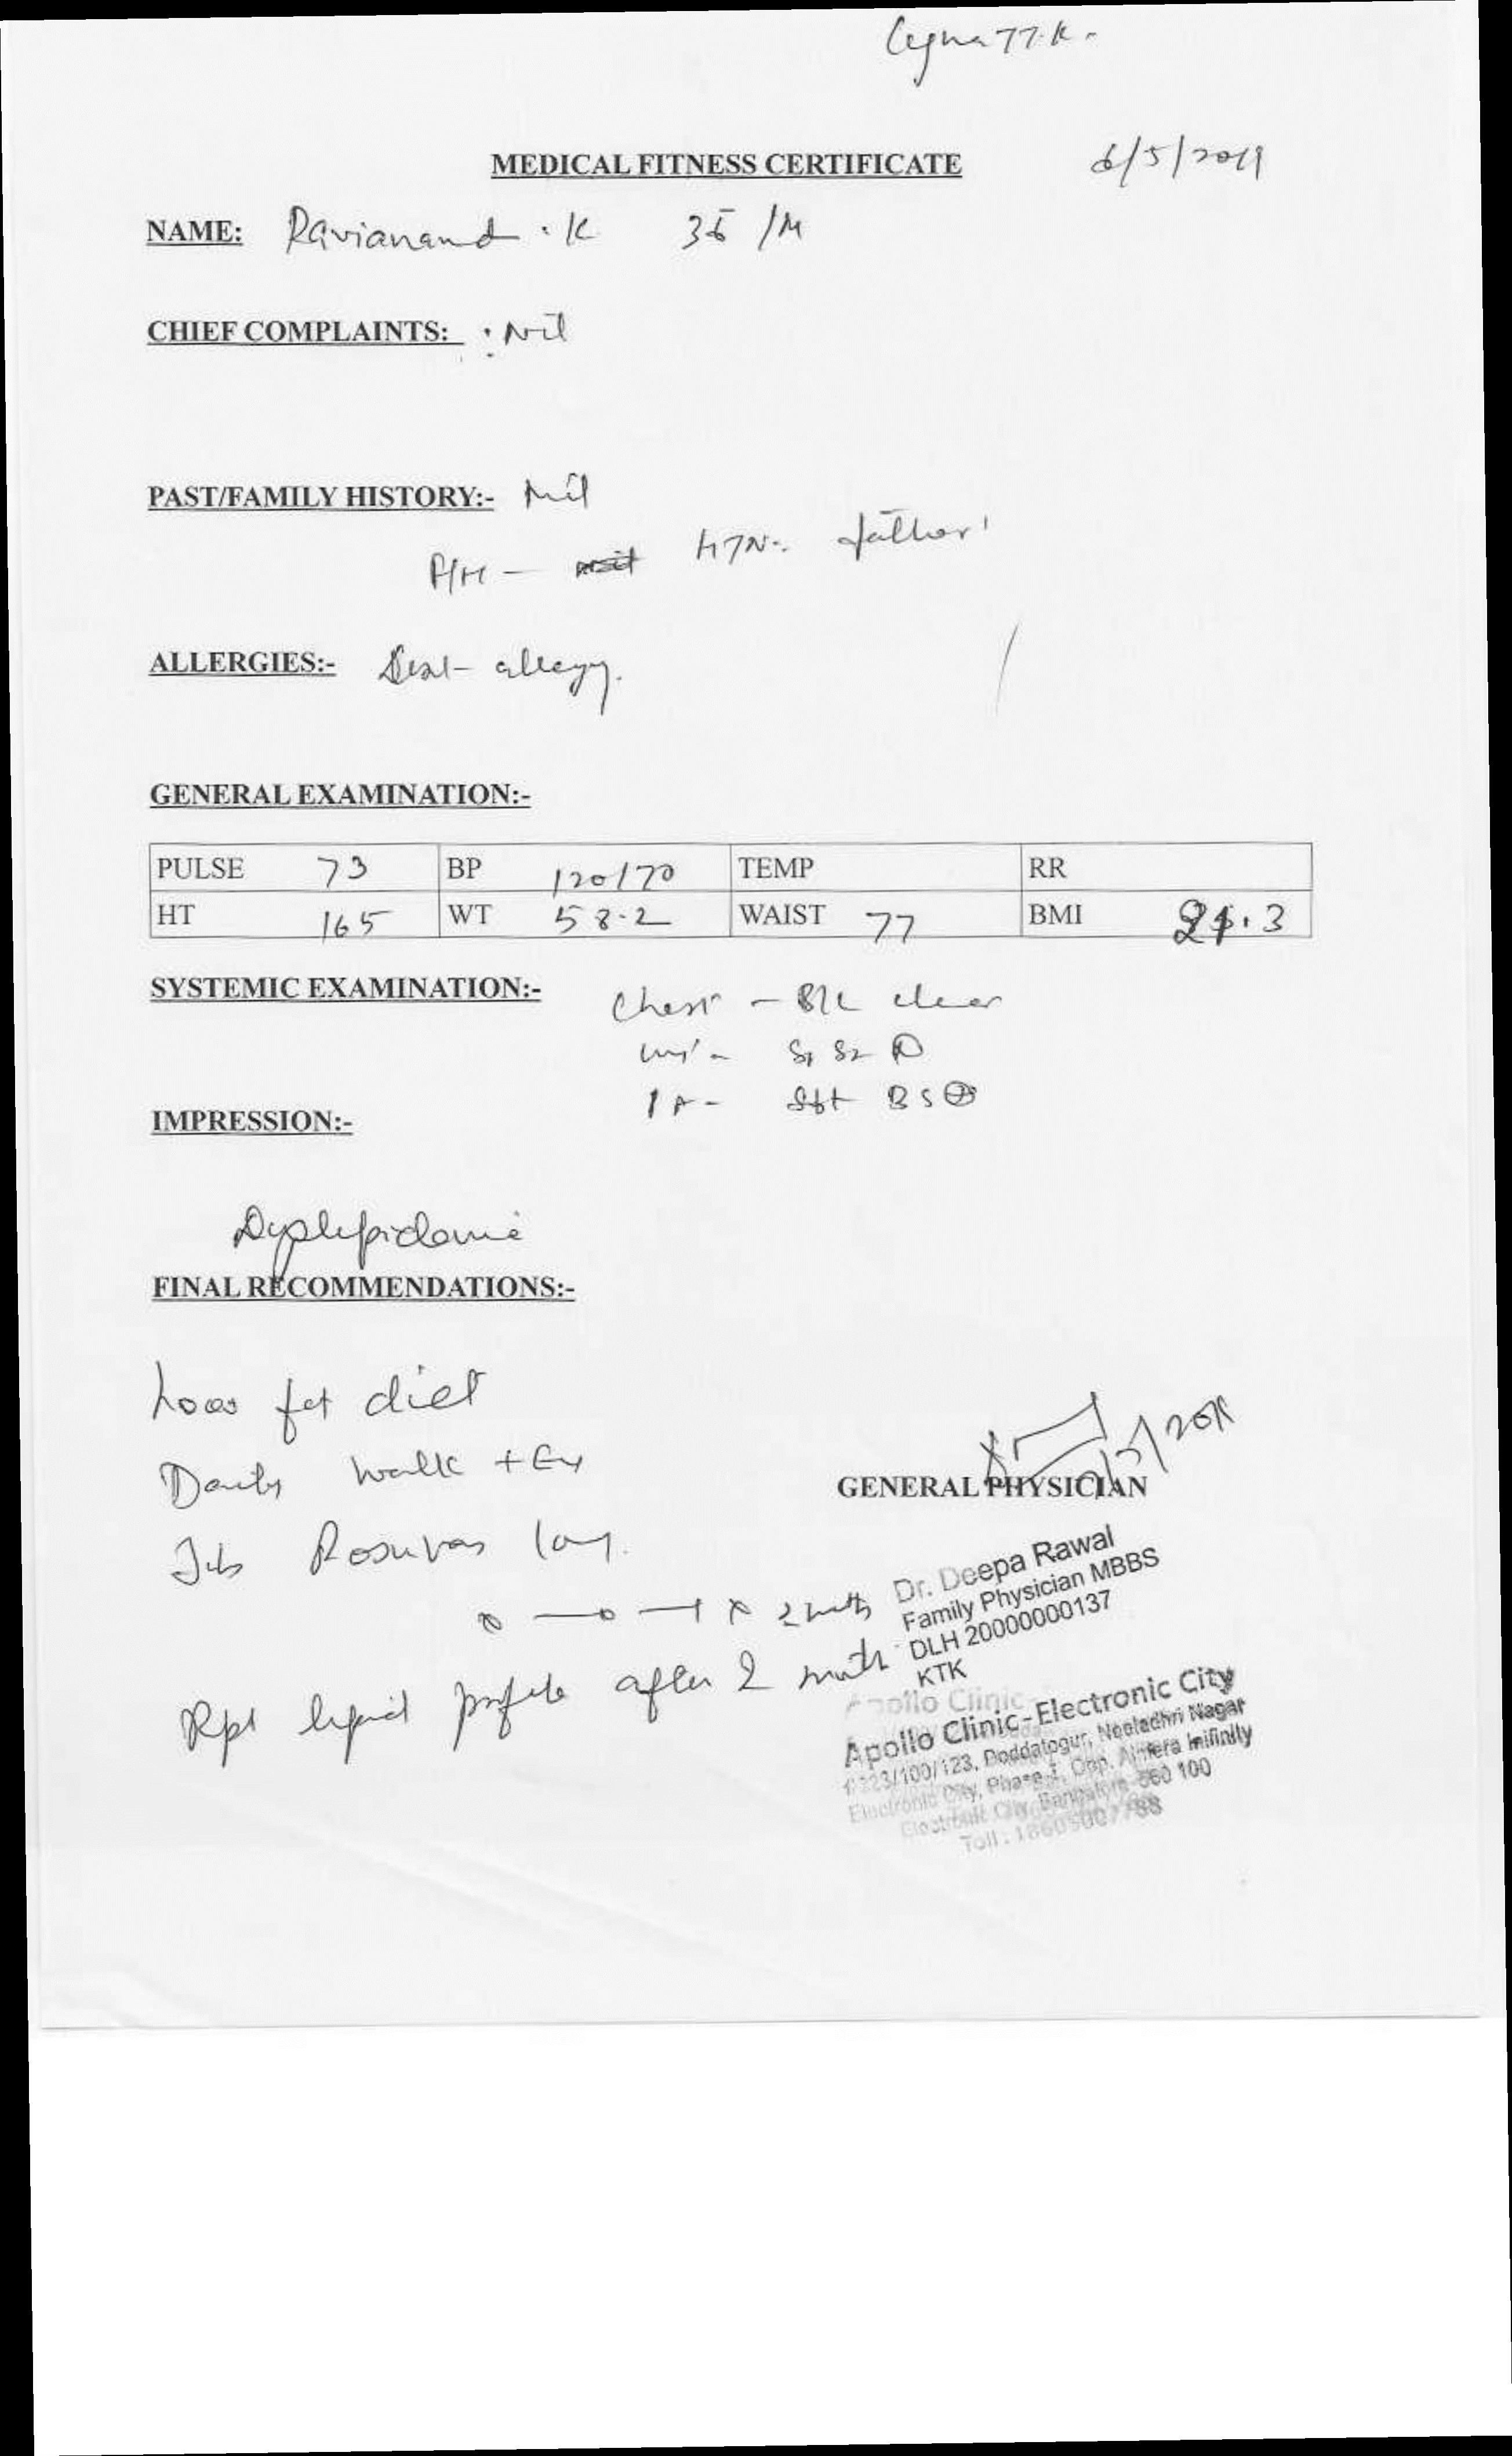 MEDICAL FITNESS CERTIFICATE 6/5/2019
NAME: Ravianand . K 35 /M
CHIEF COMPLAINTS: : Nil
PAST/FAMILY HISTORY:- Nil
F/H - HTN - father
ALLERGIES:- Dust allergy.
GENERAL EXAMINATION:-
PULSE 73 BP 120/70 TEMP RR
HT 165 WT 58.2 WAIST 77 BMI 21.3
SYSTEMIC EXAMINATION:- Chest - B/L clear
S1 S2
PA - Soft BS ⊕
IMPRESSION:-
Dyslipidemia
FINAL RECOMMENDATIONS:-
Low fat diet
Daily walk + Ex
Tab Rosuvas 10mg.
GENERAL PHYSICIAN
0 — 0 — 1 x 2 months
Rpt lipid profile after 2 month
Dr. Deepa Rawal
Family Physician MBBS
DLH 20000000137
KTK
Apollo Clinic
Apollo Clinic-Electronic City
Neeladhri Nagar
Electronic City, Phase-1, Opp.
Electronic City, Bangalore-560 100
Toll : 18605007788